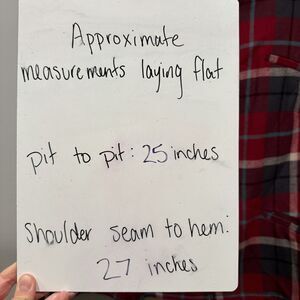 Approximate
measurements laying flat
pit to pit: 25 inches
Shoulder seam to hem:
27 inches